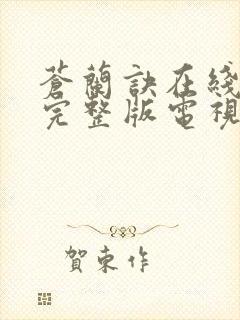 蒼蘭訣在綫
完整版電視
賀東作